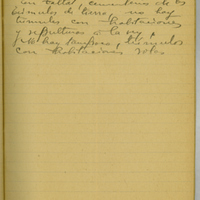 con tallas, cementerio de los
túmulos de tierra, no hay
túmulos con habitaciones
y sepulturas a la vez
no hay tampoco túmulos
con habitaciones solas